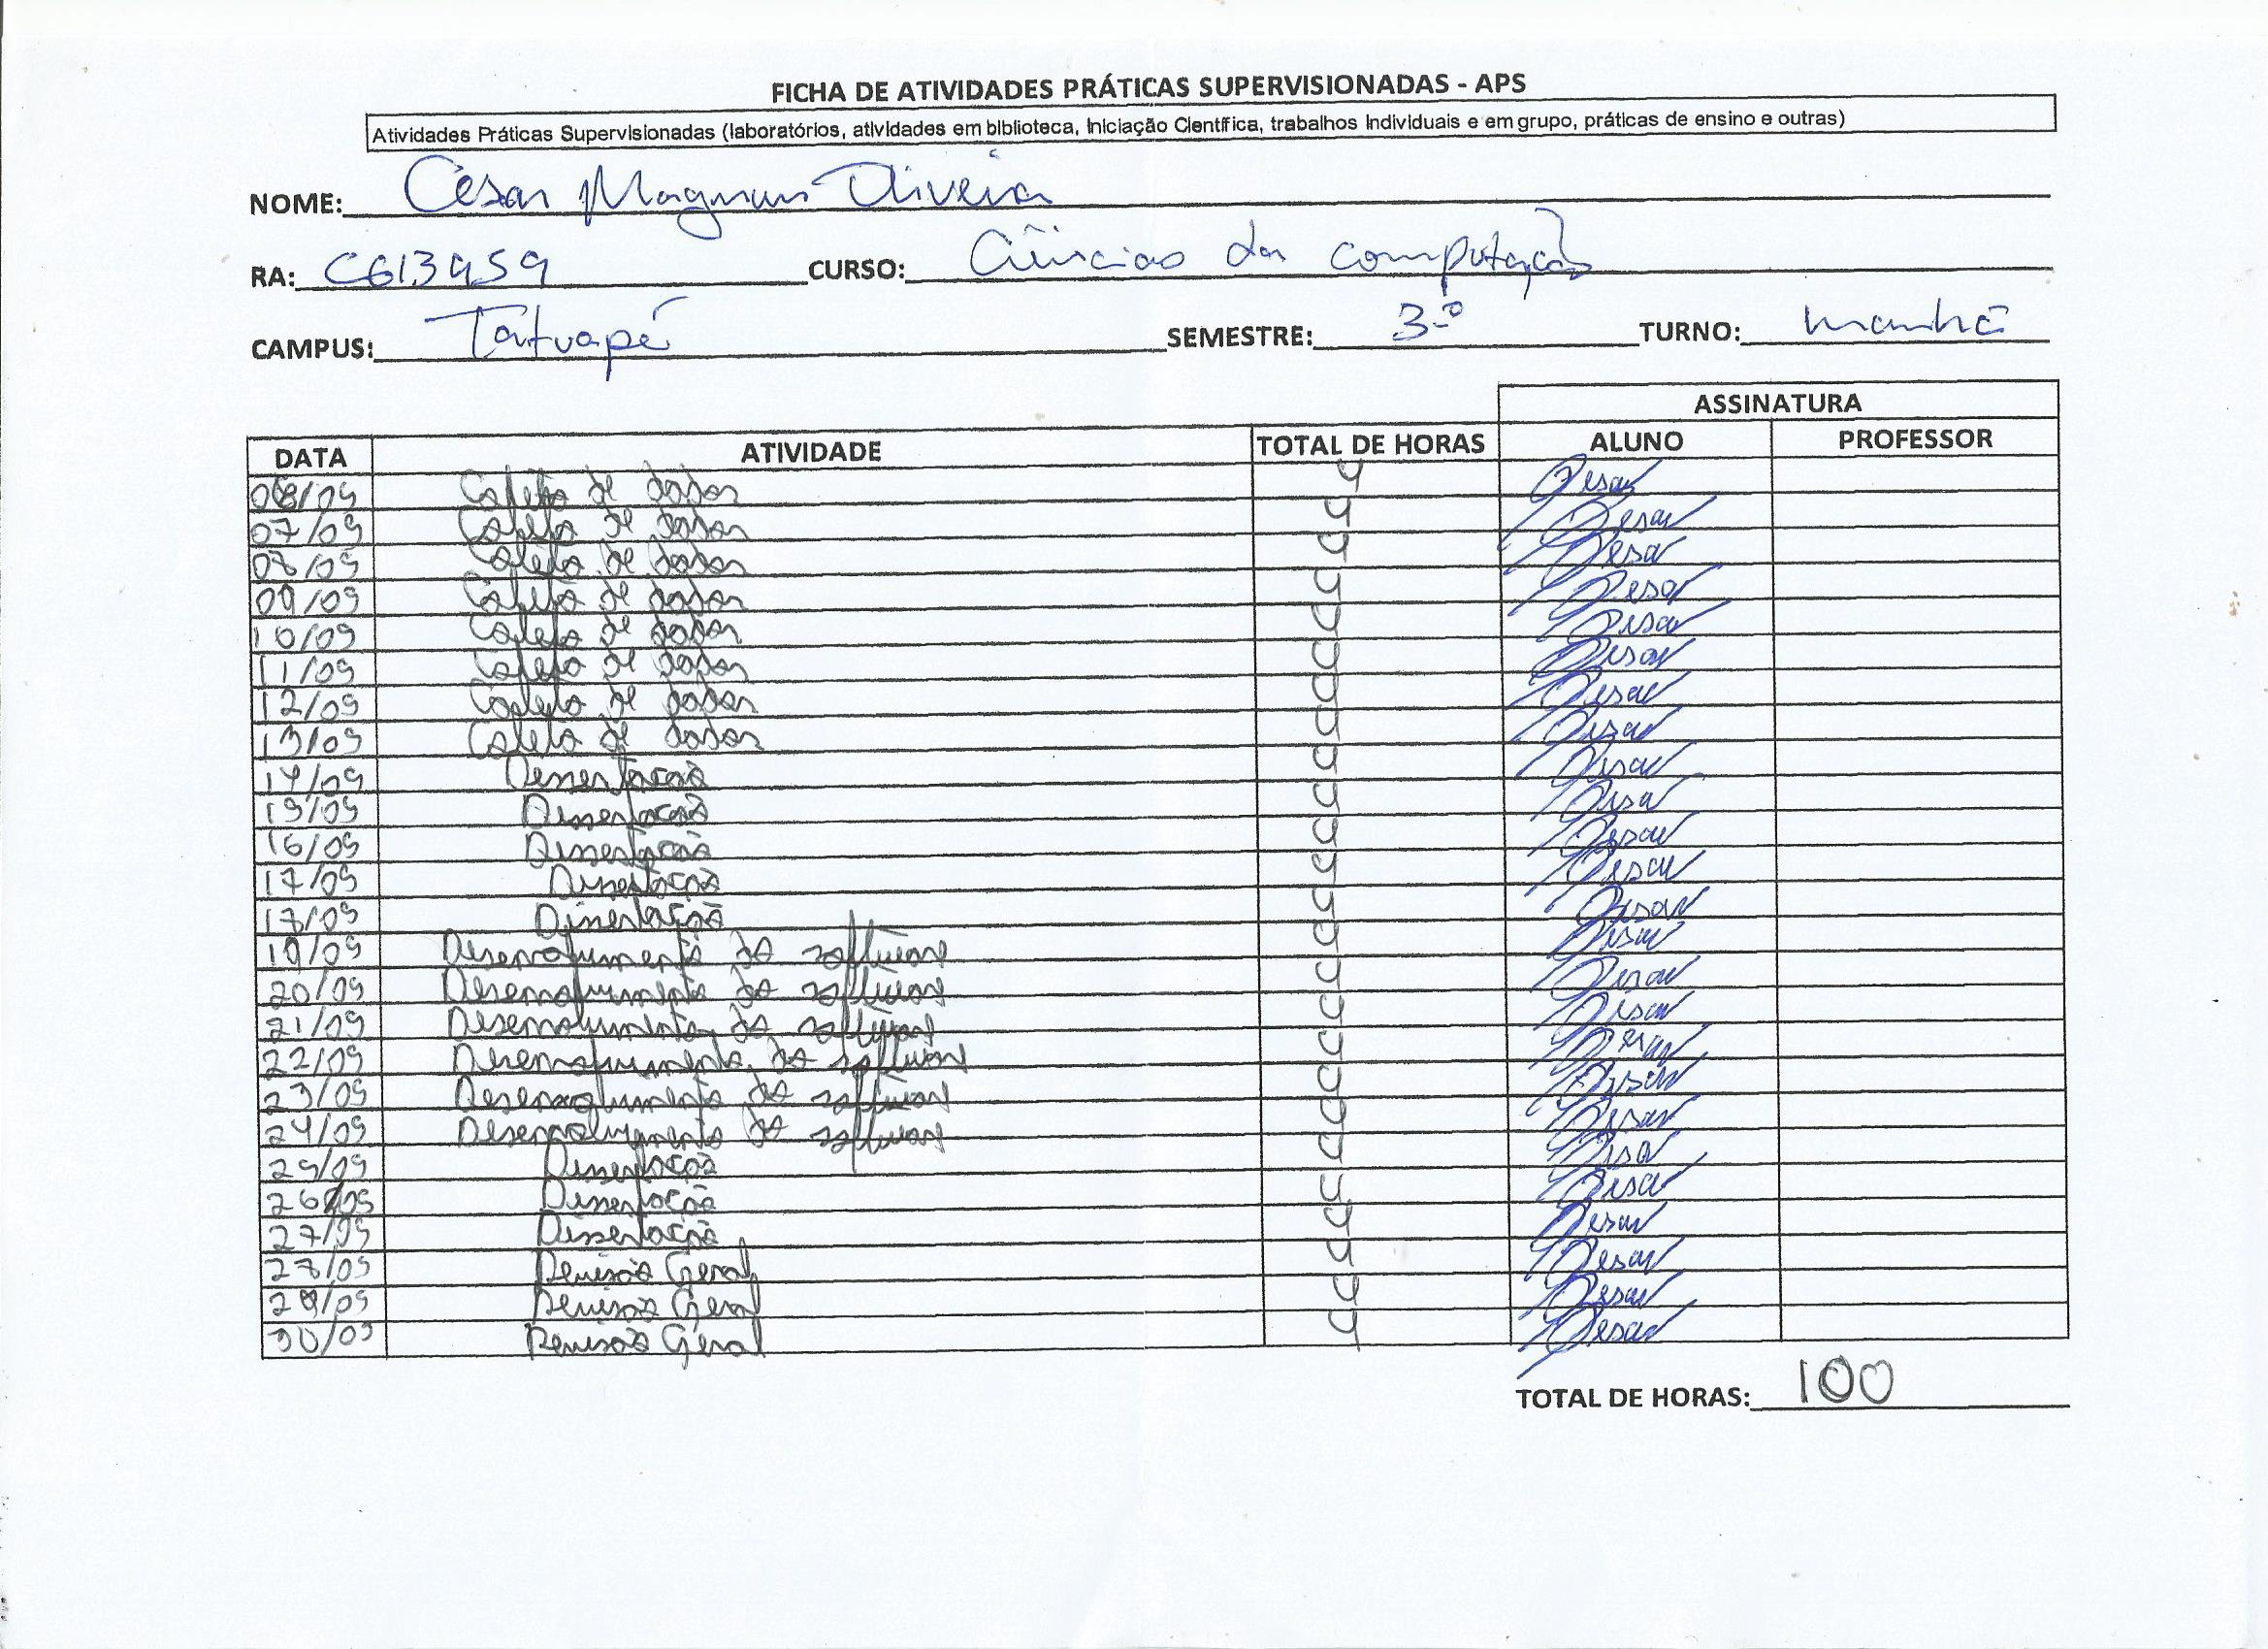 FICHA DE ATIVIDADES PRÁTICAS SUPERVISIONADAS - APS
Atividades Práticas Supervisionadas (laboratórios, atividades em biblioteca, Iniciação Científica, trabalhos individuais e em grupo, práticas de ensino e outras)
NOME: Cesar Magnus Oliveira
RA: C613959 CURSO: Ciências da computação
CAMPUS: Tatuapé SEMESTRE: 3º TURNO: manhã
ASSINATURA
DATA ATIVIDADE TOTAL DE HORAS ALUNO PROFESSOR
/09 Coleta de dados 4 Cesar
07/09 Coleta de dados 4 Cesar
08/09 Coleta de dados 4 Cesar
09/09 Coleta de dados 4 Cesar
10/09 Coleta de dados 4 Cesar
11/09 Coleta de dados 4 Cesar
12/09 Coleta de dados 4 Cesar
13/09 Coleta de dados 4 Cesar
14/09 Dissertação 4 Cesar
15/09 Dissertação 4 Cesar
16/09 Dissertação 4 Cesar
17/09 Dissertação 4 Cesar
18/09 Dissertação 4 Cesar
19/09 Desenvolvimento do software 4 Cesar
20/09 Desenvolvimento do software 4 Cesar
21/09 Desenvolvimento do software 4 Cesar
22/09 Desenvolvimento do software 4 Cesar
23/09 Desenvolvimento do software 4 Cesar
24/09 Desenvolvimento do software 4 Cesar
25/09 Dissertação 4 Cesar
26/09 Dissertação 4 Cesar
27/09 Dissertação 4 Cesar
28/09 Revisão Geral 4 Cesar
29/09 Revisão Geral 4 Cesar
30/09 Revisão Geral 4 Cesar
TOTAL DE HORAS: 100